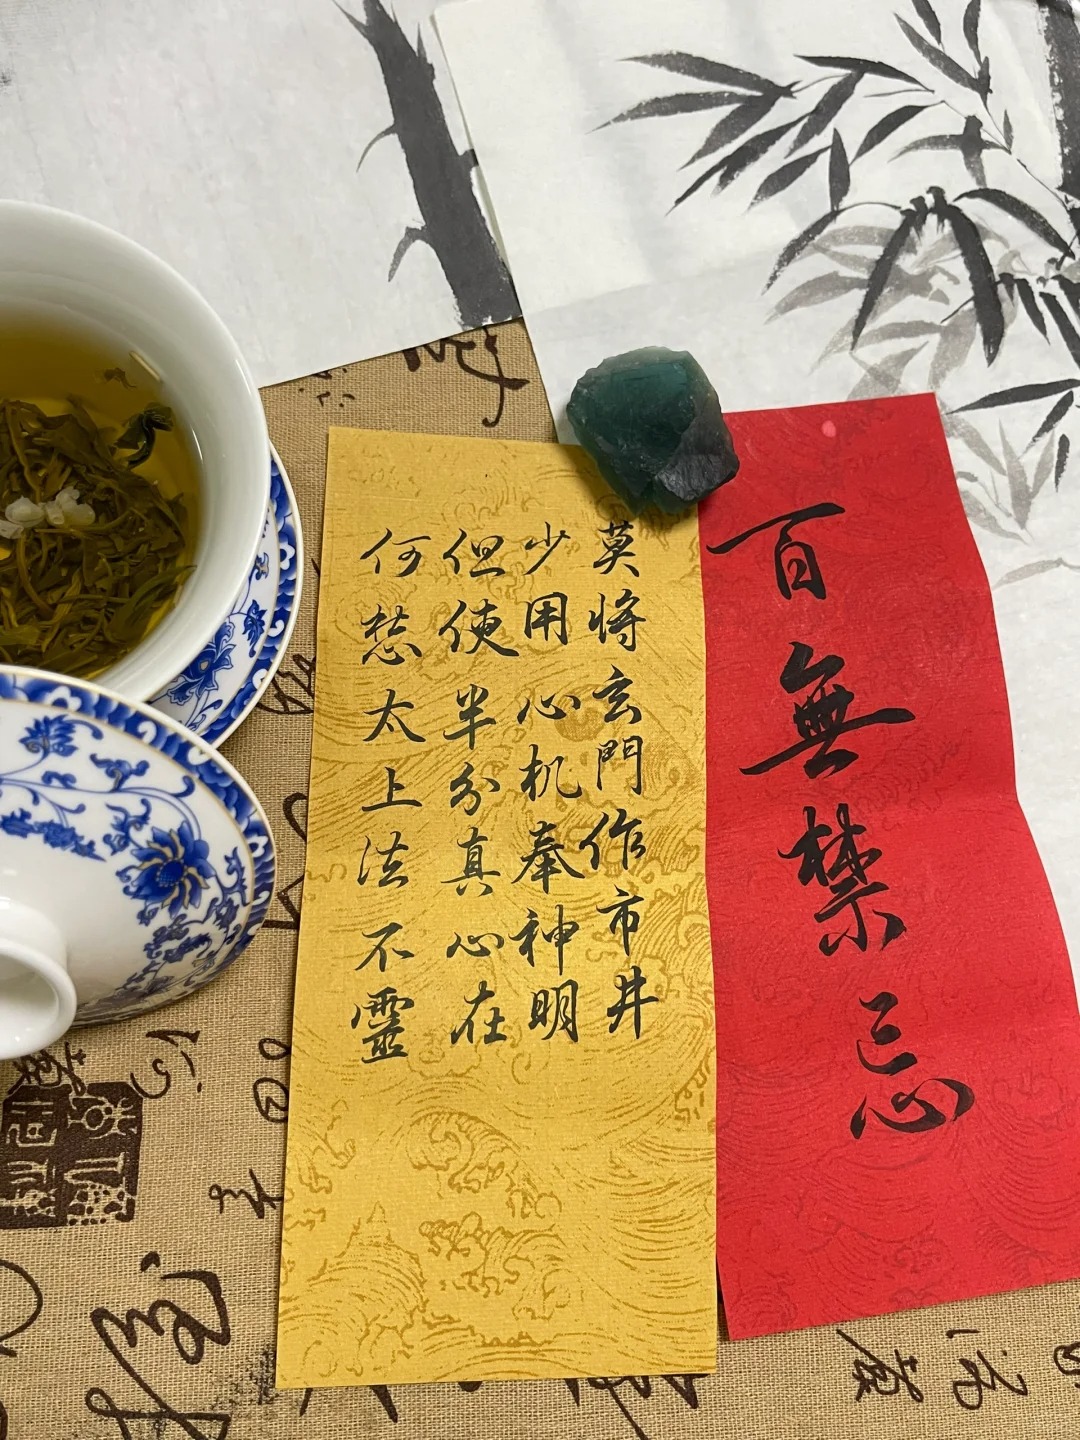 百無禁忌
莫將玄門作市井
少用心机奉神明
但使半分真心在
何愁太上法不靈